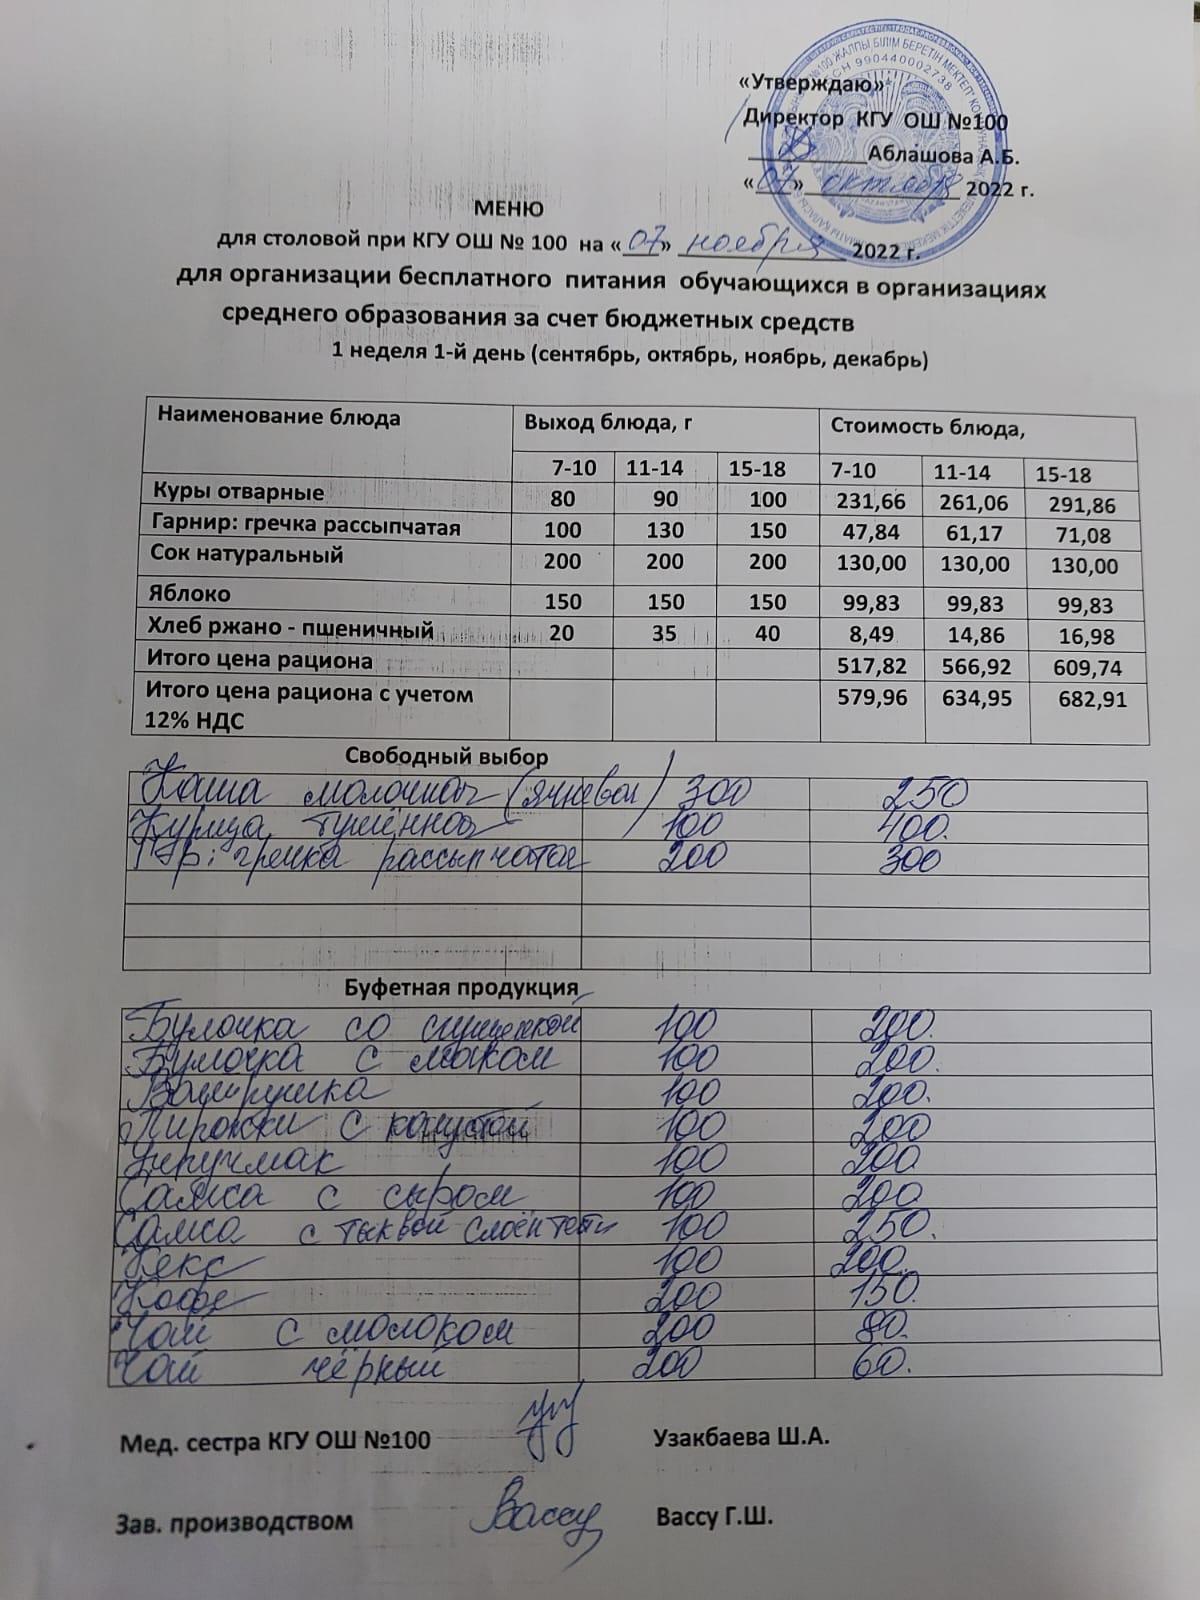 «Утверждаю»
Директор КГУ ОШ №100
Аблашова А.Б.
«07» октября 2022 г.
МЕНЮ
для столовой при КГУ ОШ № 100 на «07» ноября 2022 г.
для организации бесплатного питания обучающихся в организациях
среднего образования за счет бюджетных средств
1 неделя 1-й день (сентябрь, октябрь, ноябрь, декабрь)
Наименование блюда Выход блюда, г Стоимость блюда,
7-10 11-14 15-18 7-10 11-14 15-18
Куры отварные 80 90 100 231,66 261,06 291,86
Гарнир: гречка рассыпчатая 100 130 150 47,84 61,17 71,08
Сок натуральный 200 200 200 130,00 130,00 130,00
Яблоко 150 150 150 99,83 99,83 99,83
Хлеб ржано - пшеничный 20 35 40 8,49 14,86 16,98
Итого цена рациона 517,82 566,92 609,74
Итого цена рациона с учетом 579,96 634,95 682,91
12% НДС
Свободный выбор
Каша молочная (ячневая) 300 250
Курица тушённая 100 400.
Гар: гречка рассыпчатая 200 300
Буфетная продукция
Булочка со сгущенкой 100 200.
Булочка с маком 100 200.
Ватрушка 100 200.
Пирожки с капустой 100 200
Учпучмак 100 200
Самса с сыром 100 200
Самса с тыквой слоён тесто 100 250.
Кекс 100 200.
Кофе 200 150.
Чай с молоком 200 80.
Чай чёрный 200 60.
Мед. сестра КГУ ОШ №100 Узакбаева Ш.А.
Зав. производством Вассу Вассу Г.Ш.